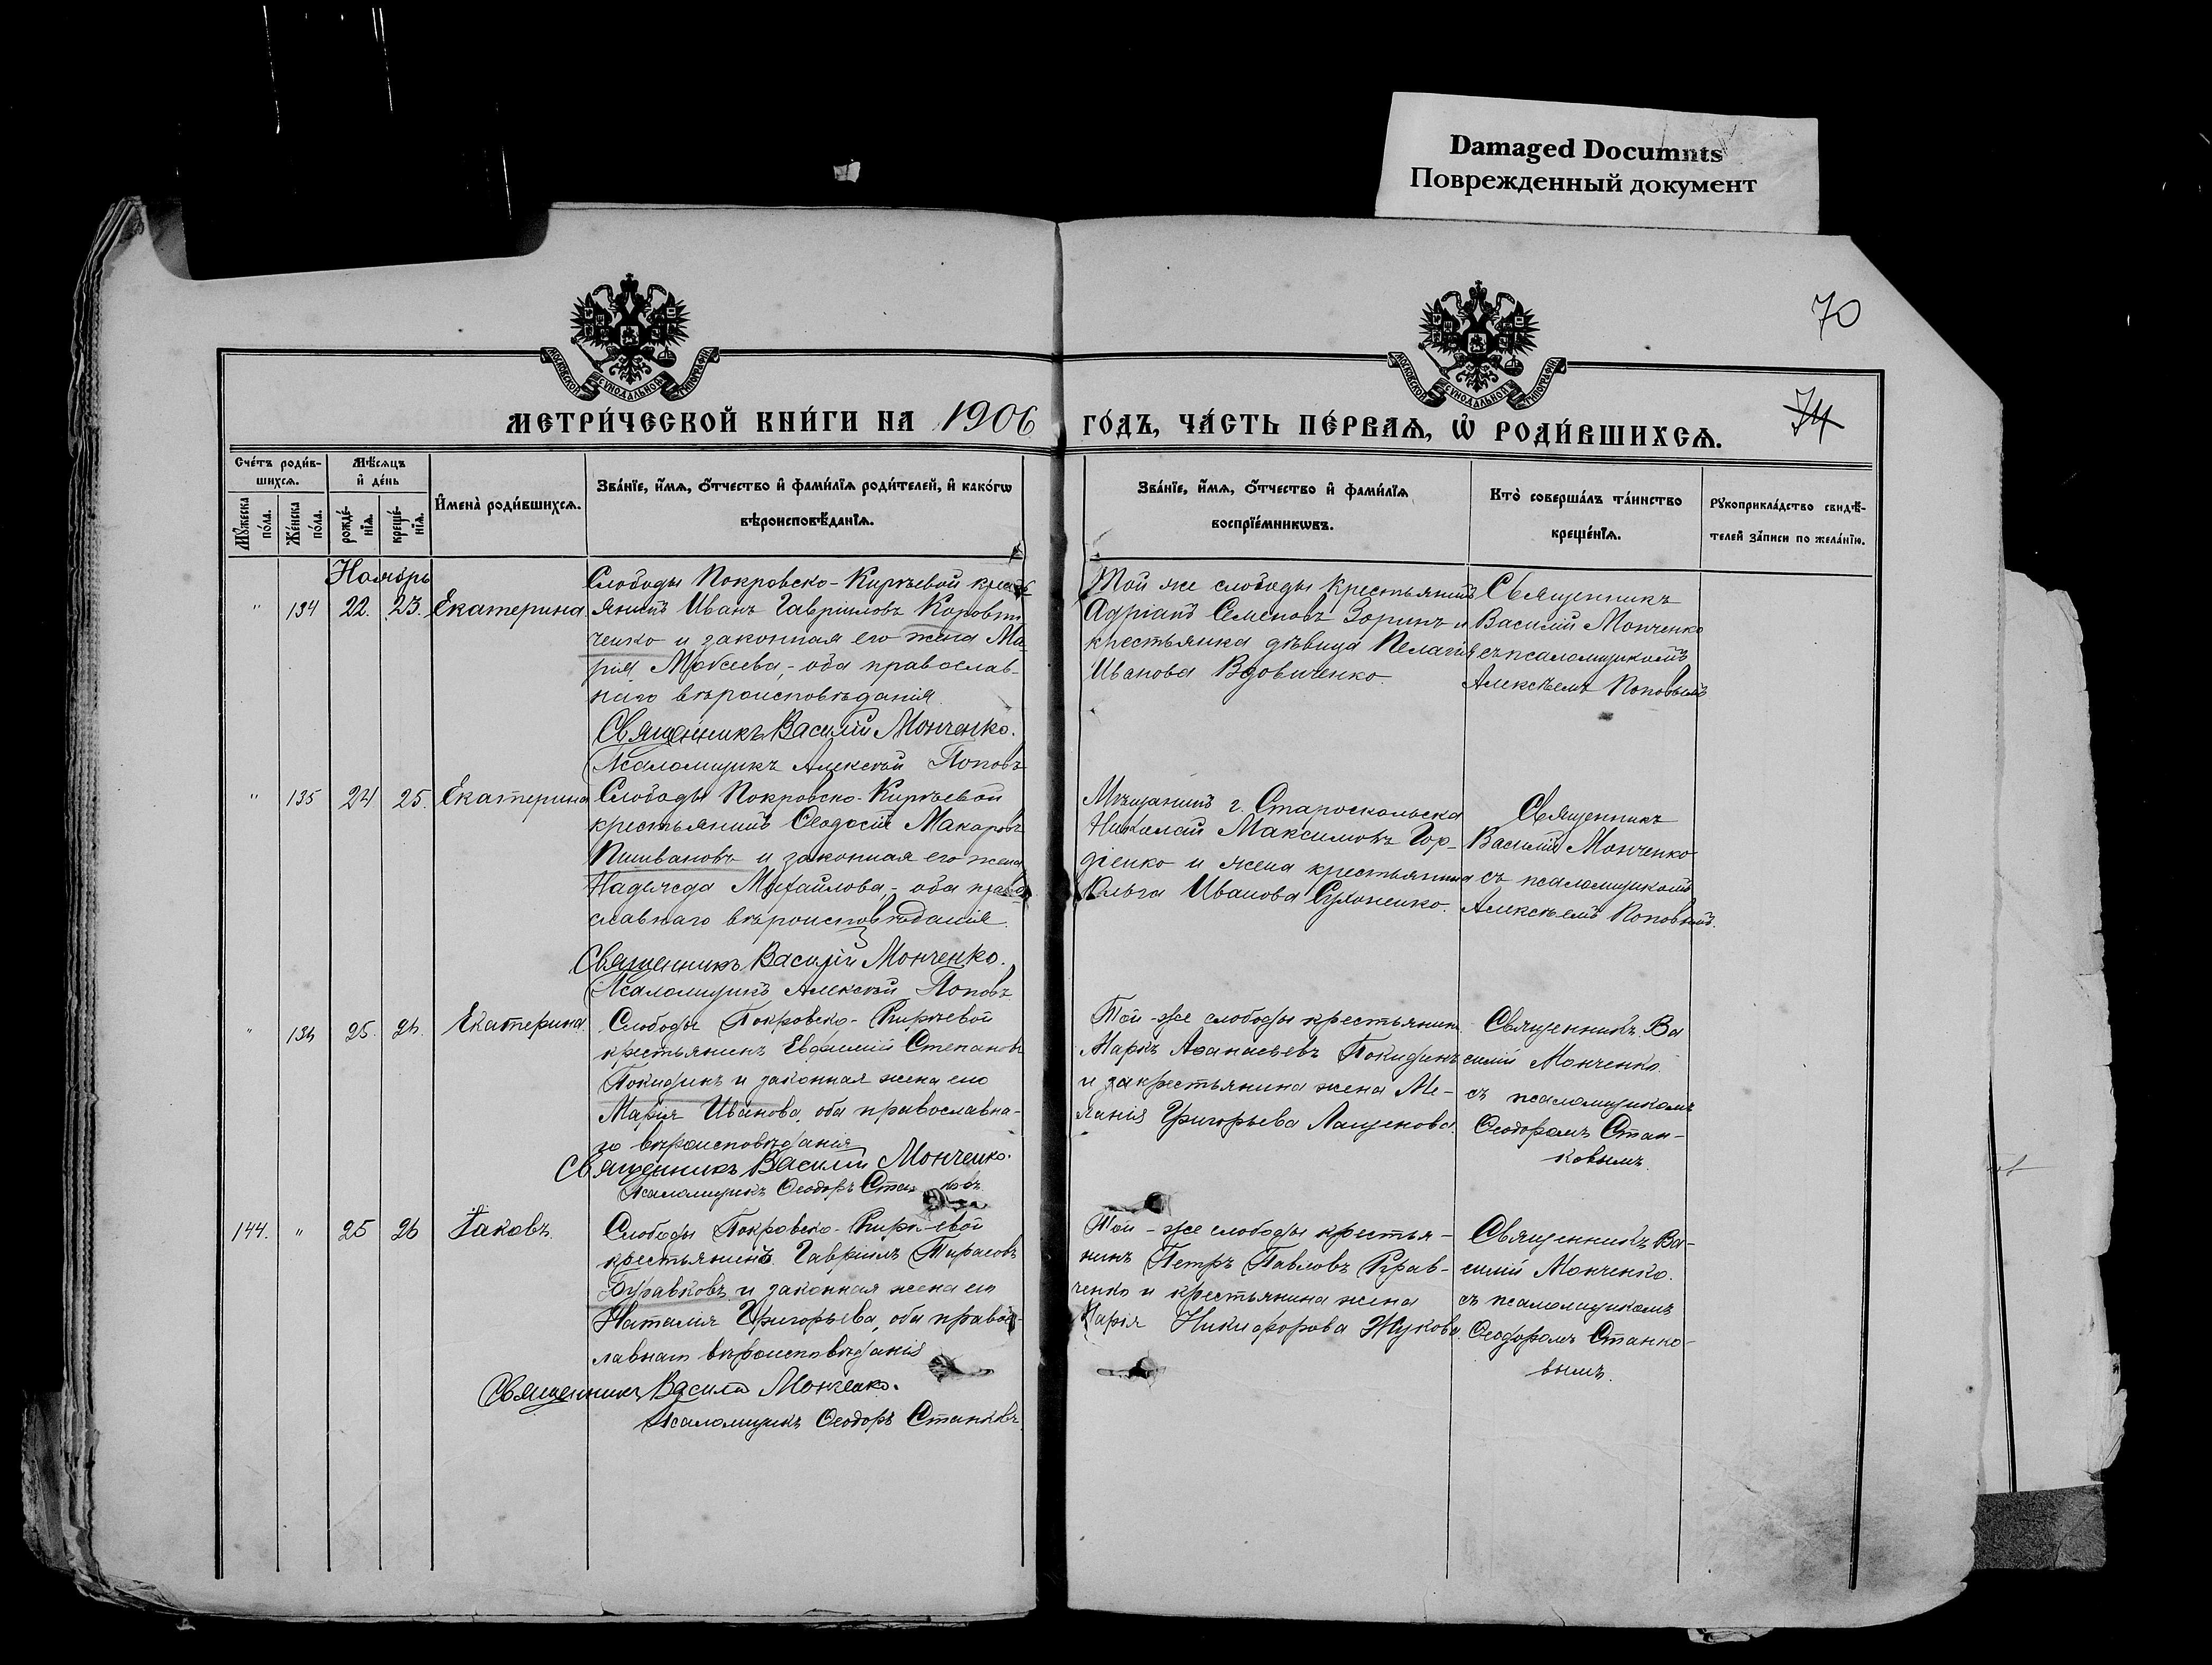 Damaged Documnts
Поврежденный документ
70
74
МОСКОВСКОЙ СѴНОДАЛЬНОЙ ТИПОГРАФІИ
МОСКОВСКОЙ СѴНОДАЛЬНОЙ ТИПОГРАФІИ
МЕТРИ́ЧЕСКОЙ КНИ́ГИ НА 1906 ГО́ДЪ, ЧА́СТЬ ПЕ́РВАѦ, Ѡ҆ РОДИ́ВШИХСѦ.
Сче́тъ роди́в-
шихсѧ.
Мꙋ́жеска по́ла.
Же́нска по́ла.
Мѣ́сѧцъ
и҆ де́нь
рожде́-
нїѧ.
креще́-
нїѧ.
И҆мена̀ роди́вшихсѧ.
Зва́нїе, и҆́мѧ, ѻ҆́тчество и҆ фами́лїѧ роди́телей, и҆ како́гѡ
вѣроисповѣ́данїѧ.
Зва́нїе, и҆́мѧ, ѻ҆́тчество и҆ фами́лїѧ
воспрїе́мникѡвъ.
Кто̀ соверша́лъ та́инство
креще́нїѧ.
Рꙋкоприкла́дство свидѣ́-
телей за́писи по жела́нїю.
Ноябрь
" 134 22. 23. Екатерина.
Слободы Покровско-Киръевой крест
янинъ Иванъ Гавриловъ Коровни
ченко и законная его жена Ма
рія Моѵсеева, - оба православ-
наго вѣроисповѣданія.
Священникъ Василій Монченко.
Псаломщикъ Алексѣй Поповъ
Той же слободы крестьянинъ
Адріанъ Семеновъ Зоринъ и
крестьянка дѣвица Пелагія
Иванова Вдовиченко.
Священникъ
Василій Монченко
съ псаломщикомъ
Алексѣемъ Поповымъ
" 135 24 25. Екатерина
Слободы Покровско-Киръевой
крестьянинъ Ѳеодосій Макаровъ
Пшивановъ и законная его жена
Надежда Михайлова, - оба право
славнаго вѣроисповѣданія.
Священникъ Василій Монченко.
Псаломщикъ Алексѣй Поповъ
Мѣщанинъ г. Староскольска
Николай Максимовъ Гор-
діенко и жена крестьянина
Ольга Иванова
Священникъ
Василій Монченко
съ псаломщикомъ
Алексѣемъ Поповымъ.
" 136 25. 26. Екатерина.
Слободы Покровско-Киръевой
крестьянинъ Евфимій Степановъ
Покидинъ и законная жена его
Марія Иванова, оба православна-
го вѣроисповѣданія
Священникъ Василій Монченко.
Псаломщикъ Ѳеодоръ Станковъ
Той-же слободы крестьянинъ
Маркъ Аѳанасьевъ Покидинъ
и крестьянина жена Ме-
ланія Григорьева Лащенова.
Священникъ Ва
силій Монченко.
съ псаломщикомъ
Ѳеодоромъ Стан-
ковымъ.
144. " 25 26 Іаковъ.
Слободы Покровско-Киръевой
крестьянинъ Гавріилъ Тарасовъ
Журавковъ и законная жена его
Наталія Григорьева, оба правос
лавнаго вѣроисповѣданія
Священникъ Василій Монченко.
Псаломщикъ Ѳеодоръ Станковъ
Той-же слободы крестья-
нинъ Петръ Павловъ Крав-
ченко и крестьянина жена
Марія Никифорова Жукова.
Священникъ Ва-
силій Монченко.
съ псаломщикомъ
Ѳеодоромъ Станко-
вымъ.